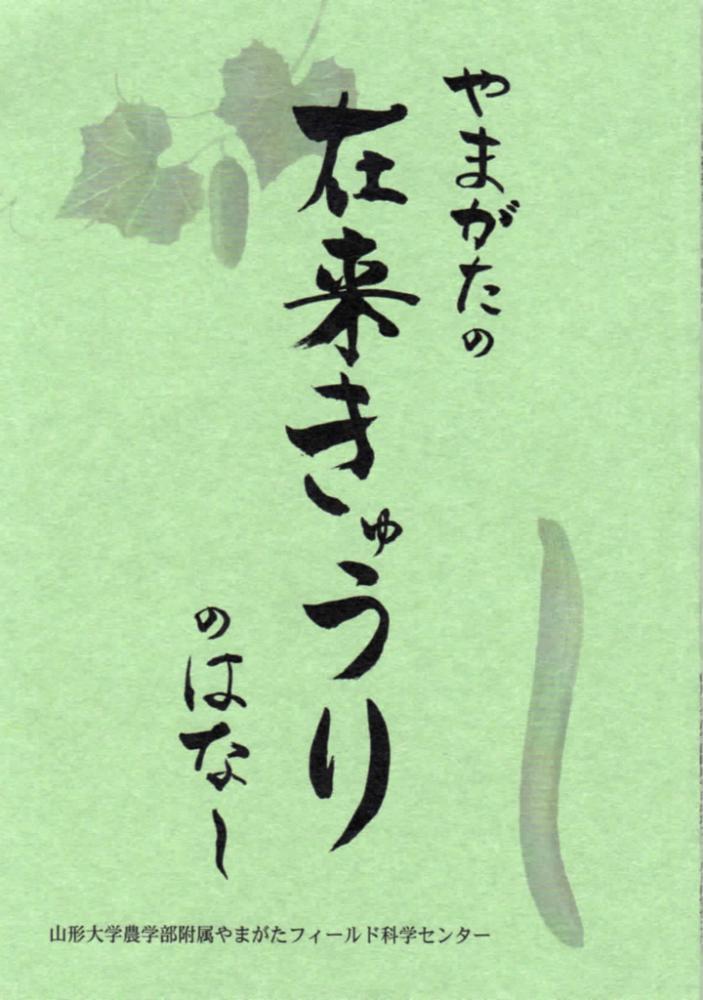 やまがたの
在来きゅうり
のはなし
山形大学農学部附属やまがたフィールド科学センター